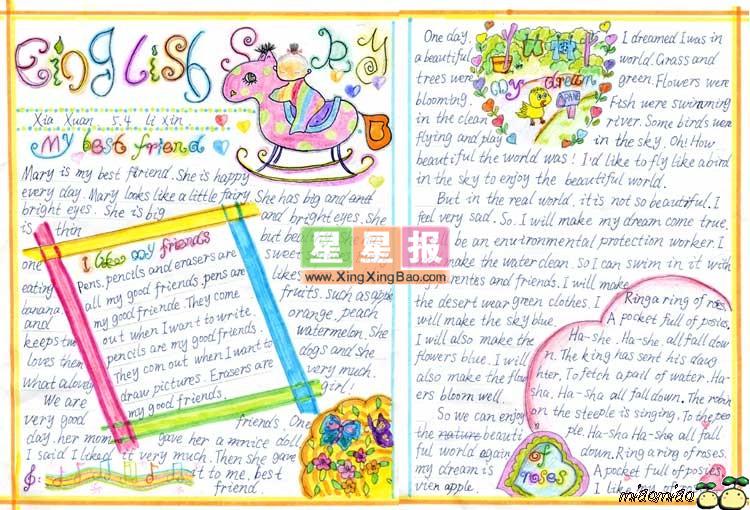 English S Y
Xia Xuan 5.4 Li Xin
My best friend
Mary is my best friend. She is happy
every day. Mary looks like a little fairy. She has big and and
bright eyes. She is big and bright eyes. She
is thin but beau
one sweet
eating likes
banana. fruits. such as apple
and orange, peach
keeps two watermelon. She
loves them dogs and she
what a lovely very much.
girl!
We are friends. One
very good
day. her mom gave her a nice doll
I said I liked it very much. Then she gave
it to me. best
friend.
I like my friends
Pens, pencils and erasers are
all my good friends. pens are
my good friende. They come
out when I want to write.
pencils are my good friends.
They com out when I want to
draw pictures. Erasers are
my good friends.
星星报
www.XingXingBao.com
One day, I dreamed I was in
a beautiful world. Grass and
trees were green. Flowers were
blooming. Fish were swimming
in the clean river. Some birds were
flying and play in the sky. Oh! How
beautiful the world was! I'd like to fly like a bird
in the sky to enjoy the beautiful world.
My dream
But in the real world, it is not so beautiful. I
feel very sad. So. I will make my dream come true.
I'll be an environmental protection worker. I
make the water clean. So I can swim in it with
my parentes and friends. I will make
the desert wear green clothes. I
will make the sky blue.
I will also make the
flowers blue. I will
also make the flow
ers bloom well.
So we can enjoy
the nature beauti
ful world again
my dream is
vien apple.
Ring a ring of roses.
A pocket full of posies.
Ha-she. Ha-she. all fall dow
n. The king has sent his daug
hter. To fetch a pail of water. Ha-
sha. Ha-sha. all fall down. The robin
on the steeple is singing. To the peo
ple. Ha-sha Ha-sha all fall
down. Ring a ring of roses.
A pocket full of posies
I like my of roses
of
roses
miaomiao